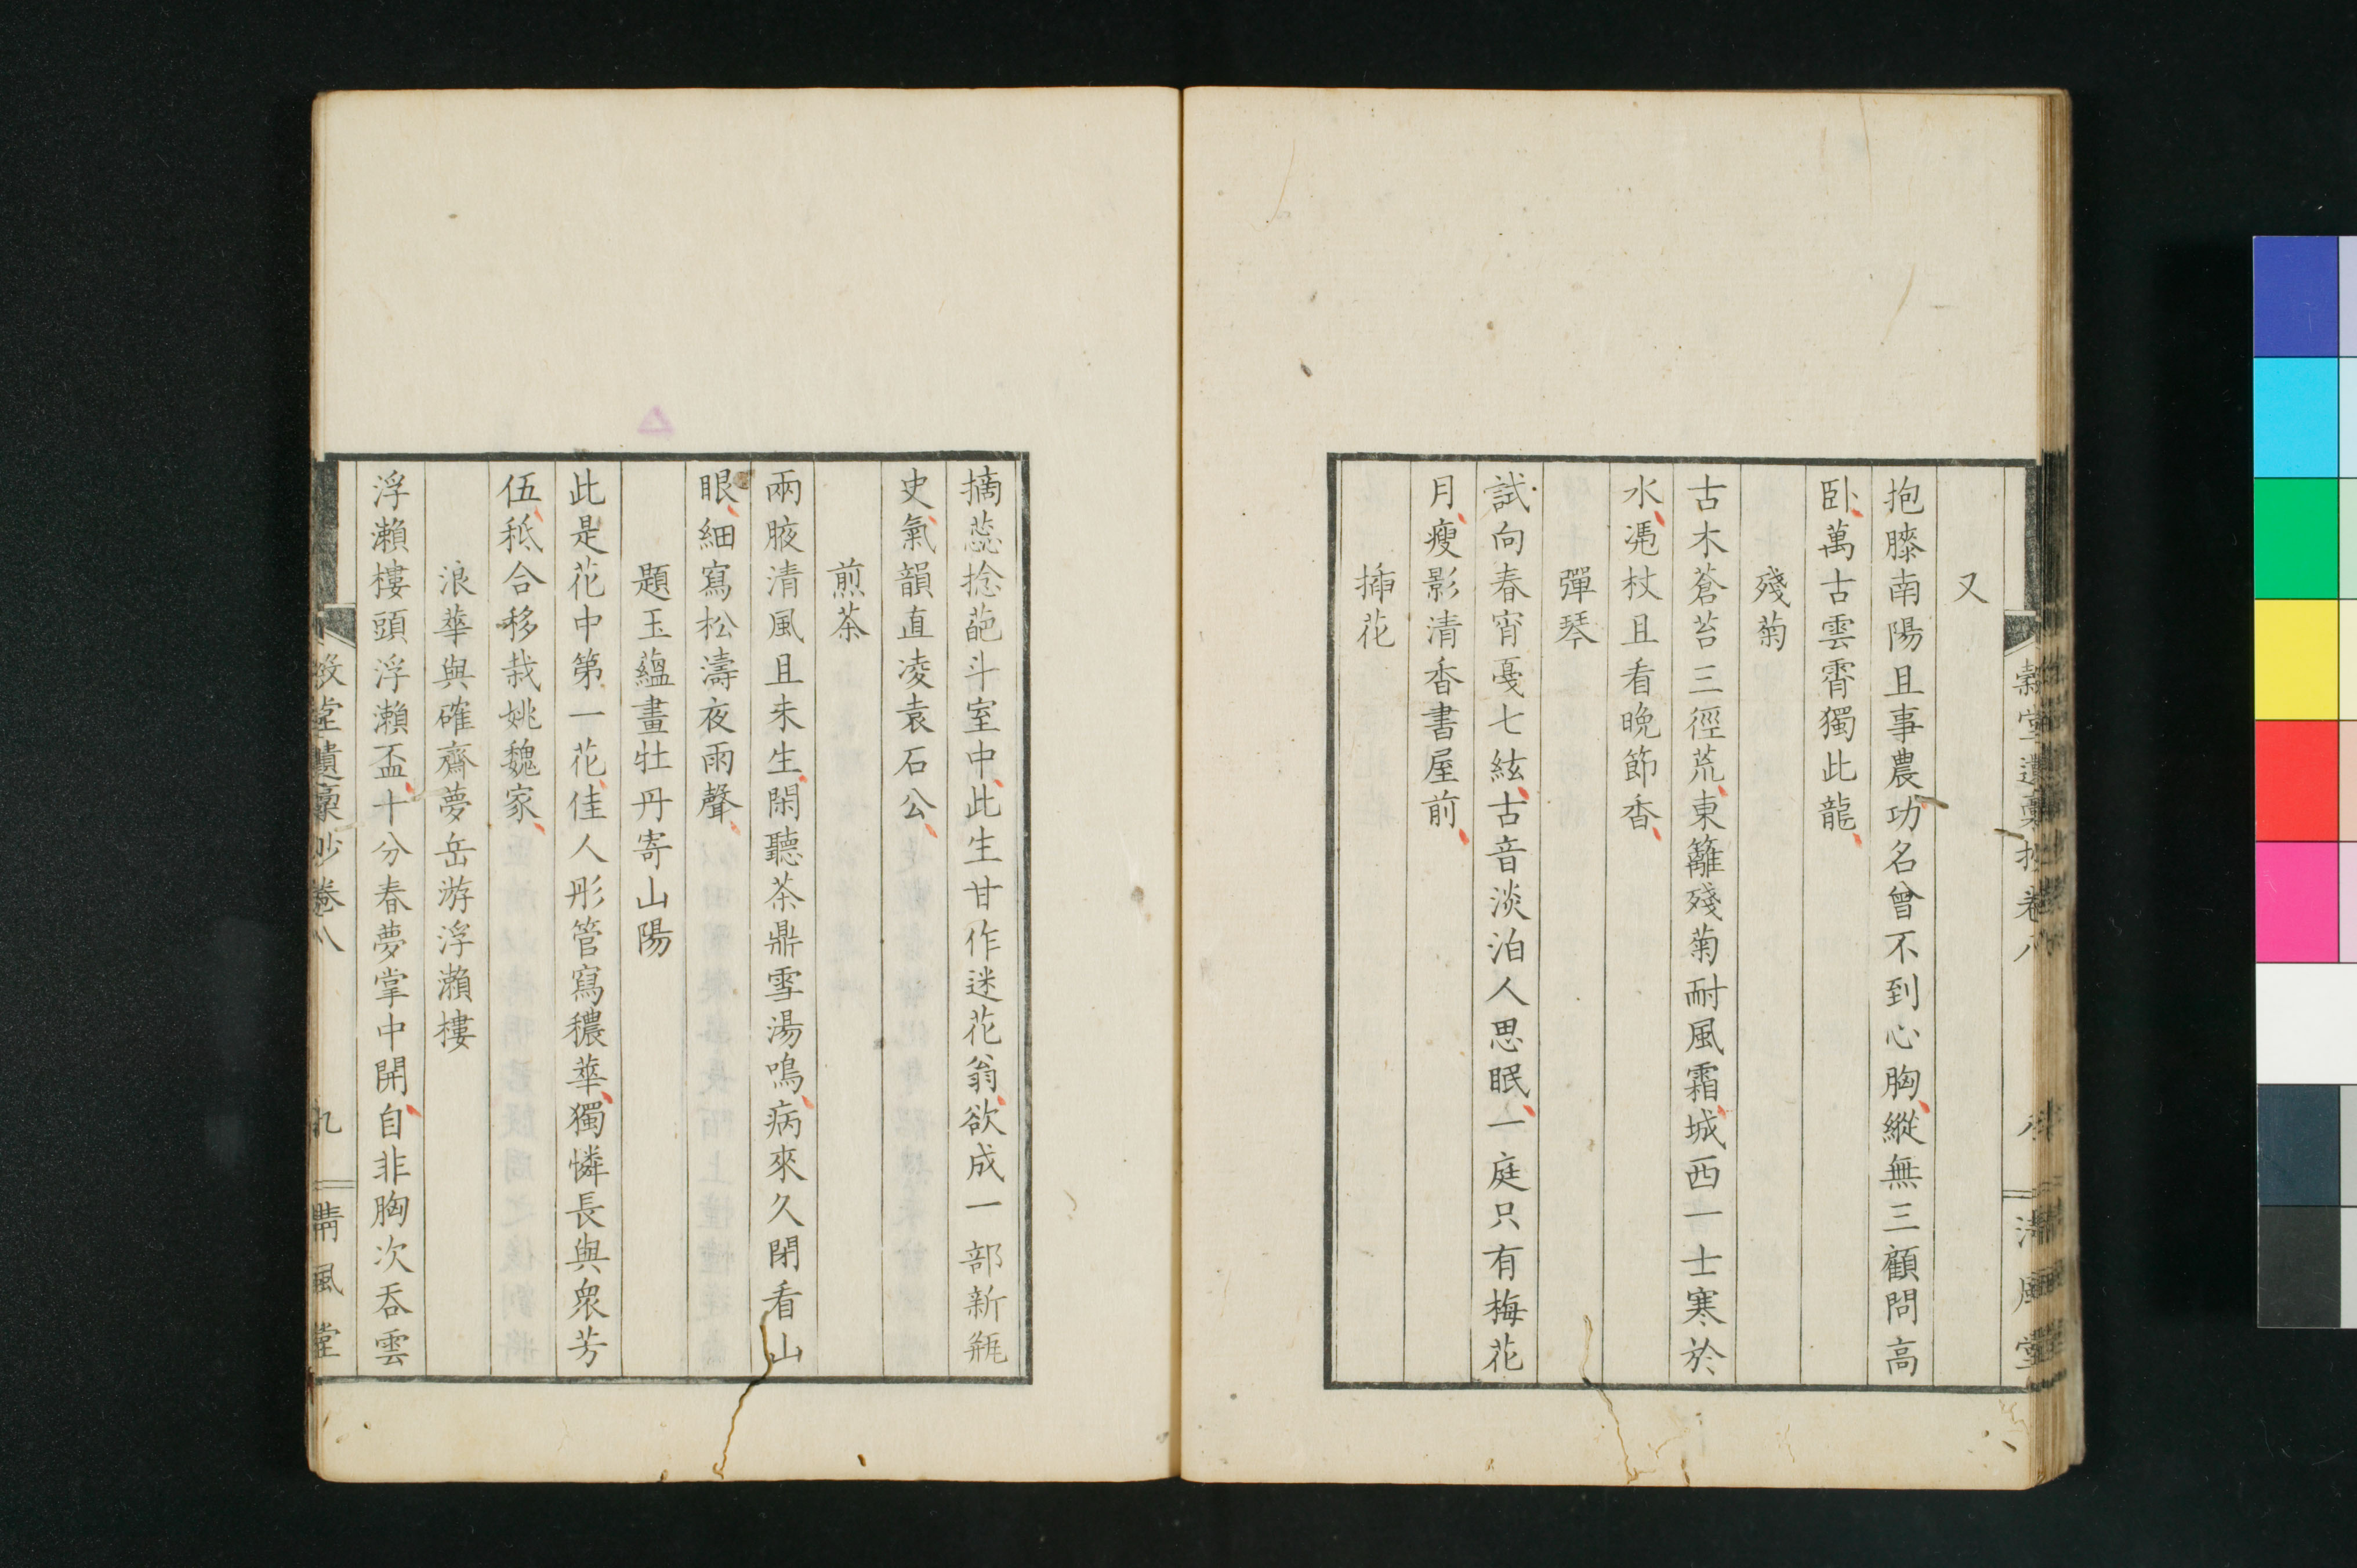 又
抱膝南陽且事農功名曾不到心胸縱無三顧問高
卧萬古雲霄獨此龍
殘菊
古木蒼苔三徑荒東籬殘菊耐風霜城西一士寒於
水凴杖且看晩節香
彈琴
試向春宵戞七絃古音淡泊人思眠一庭只有梅花
月瘦影清香書屋前
揷花
摘蕊捻葩斗室中此生甘作迷花翁欲成一部新瓶
史氣韻直凌袁石公
煎茶
兩腋清風且未生閑聽茶鼎雪湯鳴病來久閉看山
眼細寫松濤夜雨聲
題玉蘊畫牡丹寄山陽
此是花中第一花佳人彤管寫穠華獨憐長與衆芳
伍秪合移栽姚魏家
浪華與確齋夢岳游浮瀨樓
浮瀨樓頭浮瀨盃十分春夢掌中開自非胸次吞雲
堂遺稾抄卷八
九
晴風堂